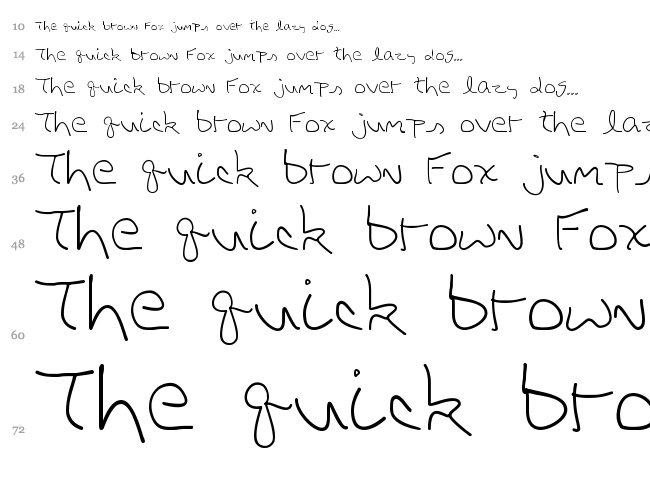 10 The quick brown Fox jumps over the lazy dog...
14 The quick brown Fox jumps over the lazy dog...
18 The quick brown Fox jumps over the lazy dog...
24 The quick brown Fox jumps over the laz
36 The quick brown Fox jumps
48 The quick brown Fox
60 The quick brown
72 The quick bro